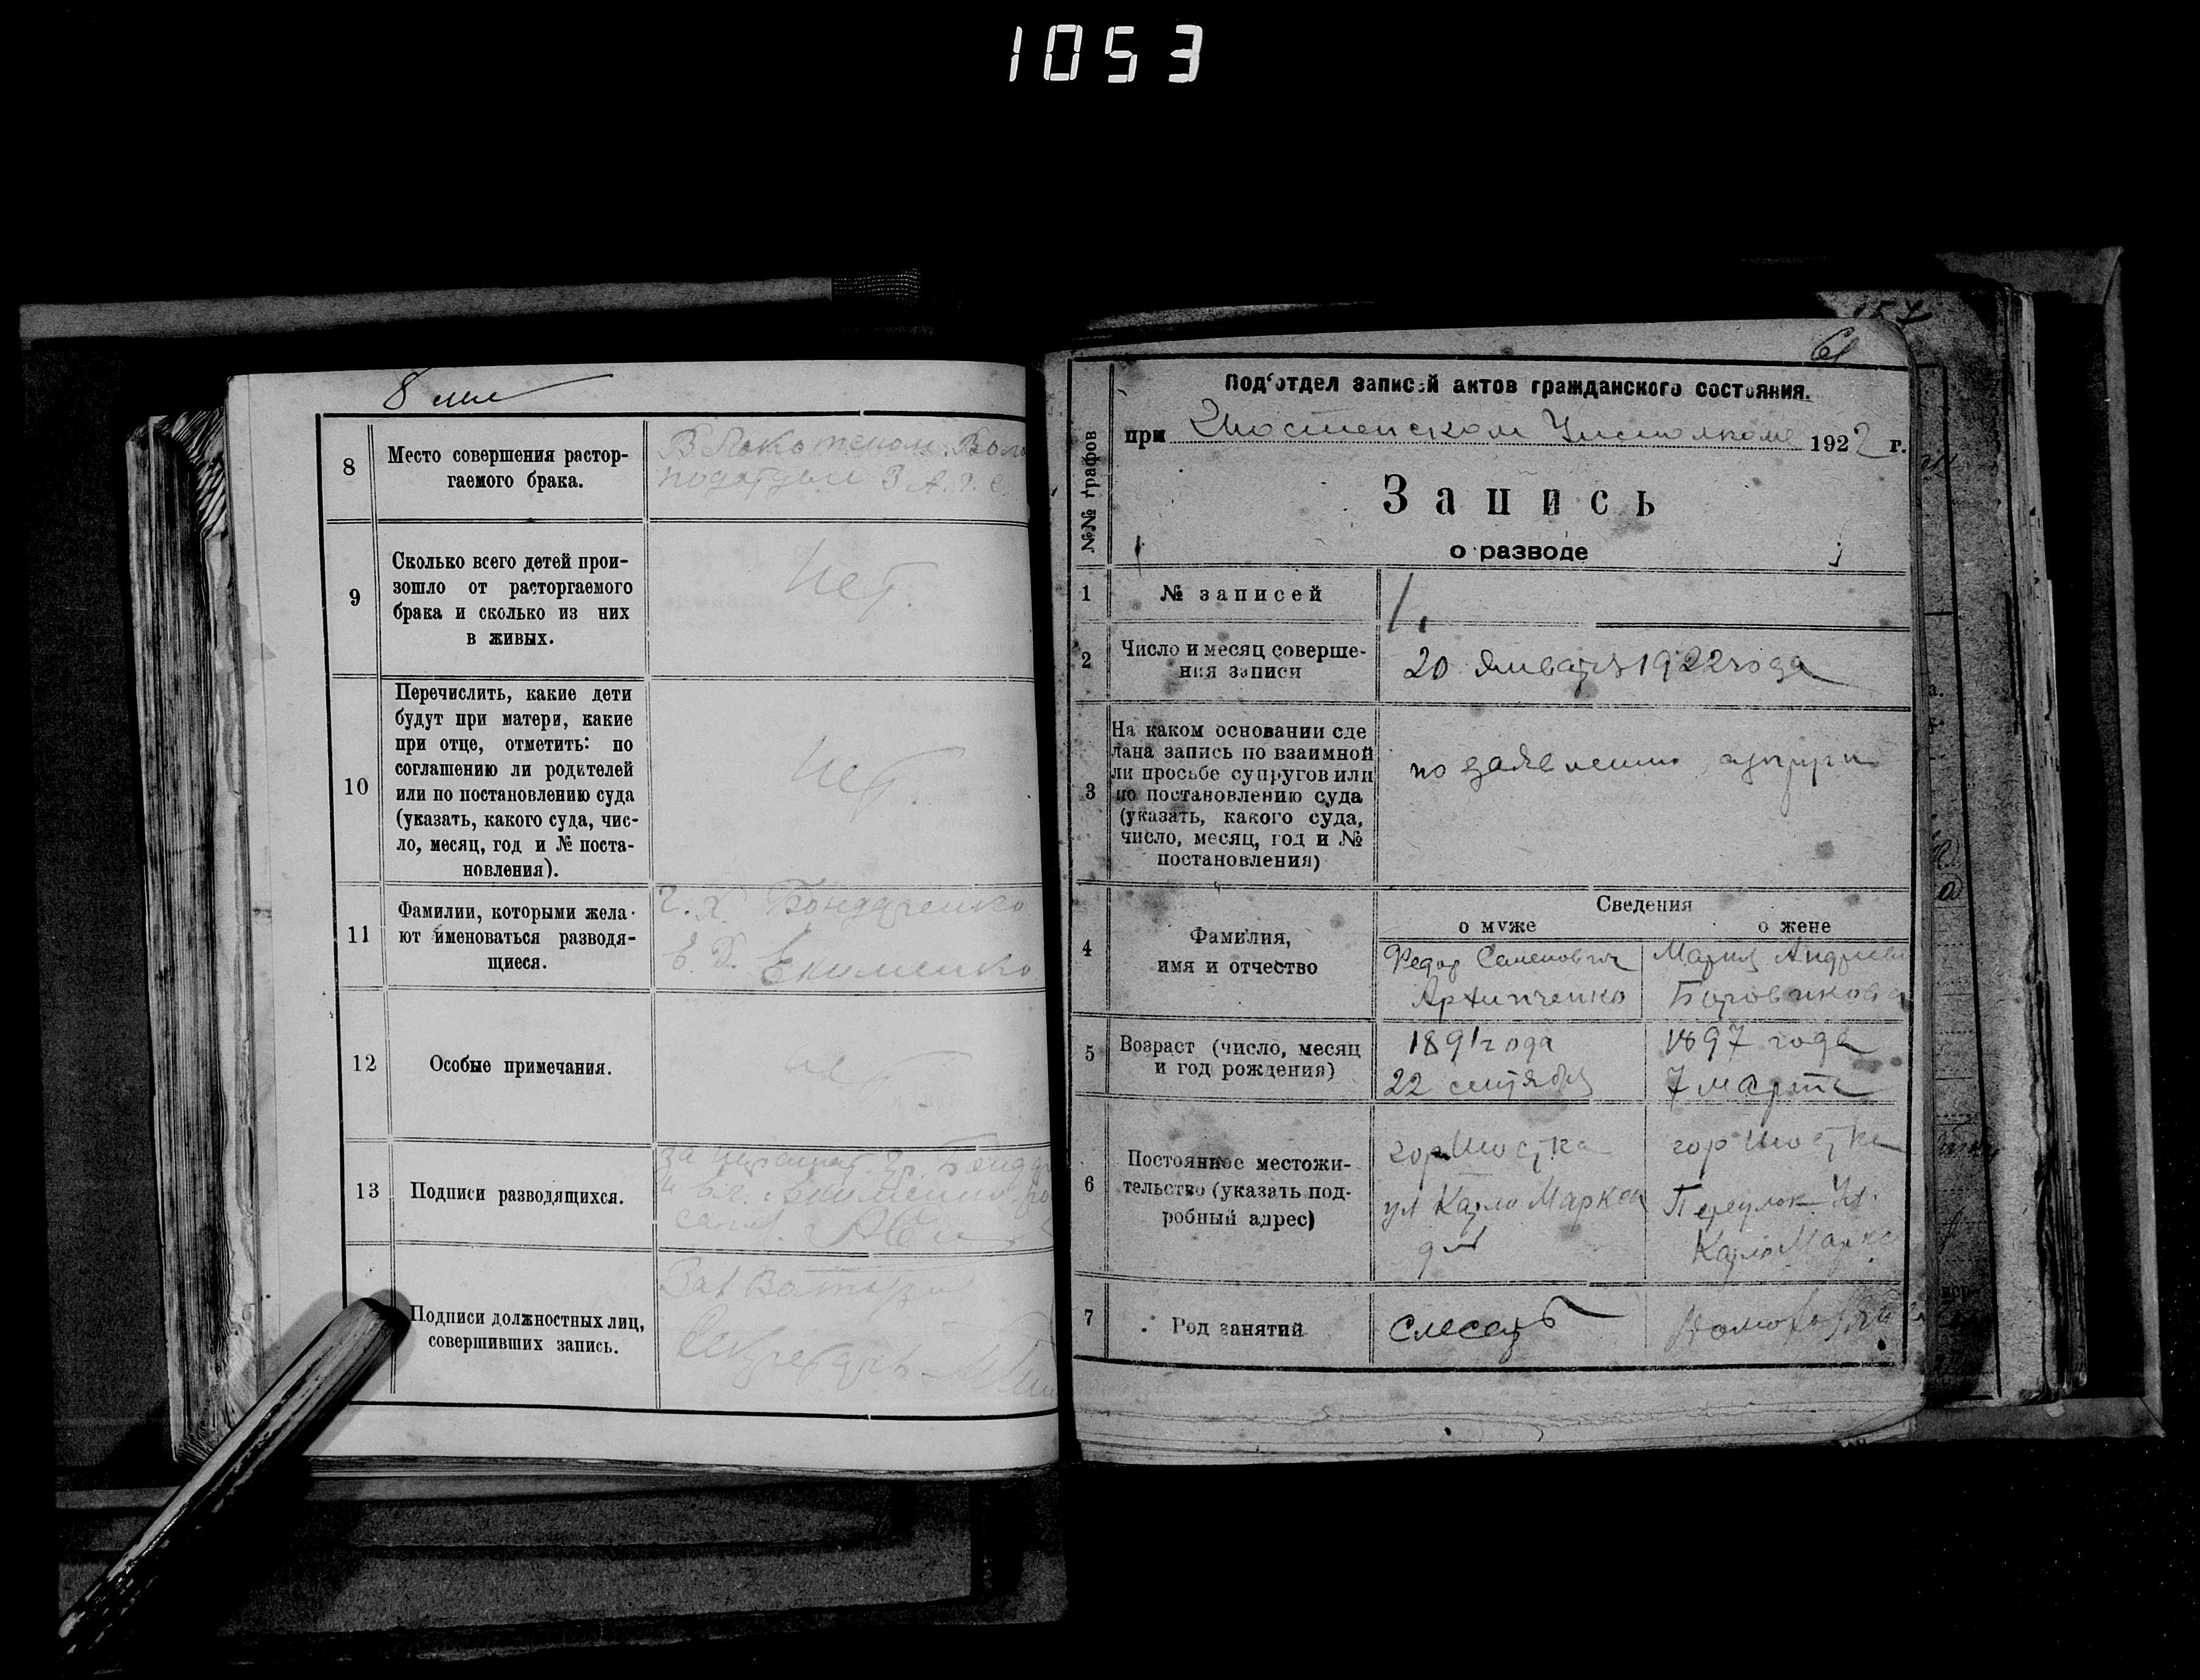 1053
8
8 Место совершения растор-
гаемого брака.
В
подотдел З А. Г. С.
9 Сколько всего детей прои-
зошло от расторгаемого
брака и сколько из них
в живых.
Нет.
10 Перечислить, какие дети
будут при матери, какие
при отце, отметить: по
соглашению ли родителей
или по постановлению суда
(указать, какого суда, чис-
ло, месяц, год и № поста-
новления).
Нет.
11 Фамилии, которыми жела-
ют именоваться разводя-
щиеся.
Бондаренко
Екименко
12 Особые примечания.
нет
13 Подписи разводящихся.
Подписи должностных лиц,
совершивших запись.
Секретарь
157
61
№№ графов
Под'отдел записей актов гражданского состояния.
при Шостенском Исполкоме 1922 г.
Запись
о разводе
1 № записей 1.
2 Число и месяц соверше-
ния записи
20 Января 1922 года
3 На каком основании сде
лана запись по взаимной
ли просьбе супругов или
по постановлению суда
(указать, какого суда,
число, месяц, год и №
постановления)
по заявлению
Сведения
о муже о жене
4 Фамилия,
имя и отчество
Федор Семенович
Архипченко
Мария Андреевн
Боровикова
5 Возраст (число, месяц
и год рождения)
1891 года
22 сентября
1897 года
7 марта
6 Постоянное местожи-
тельство (указать под-
робный адрес)
гор Шостка
ул Карла Маркса
гор Шостка
Переулок Ул.
Карла Маркса
7 Род занятий
Слесарь